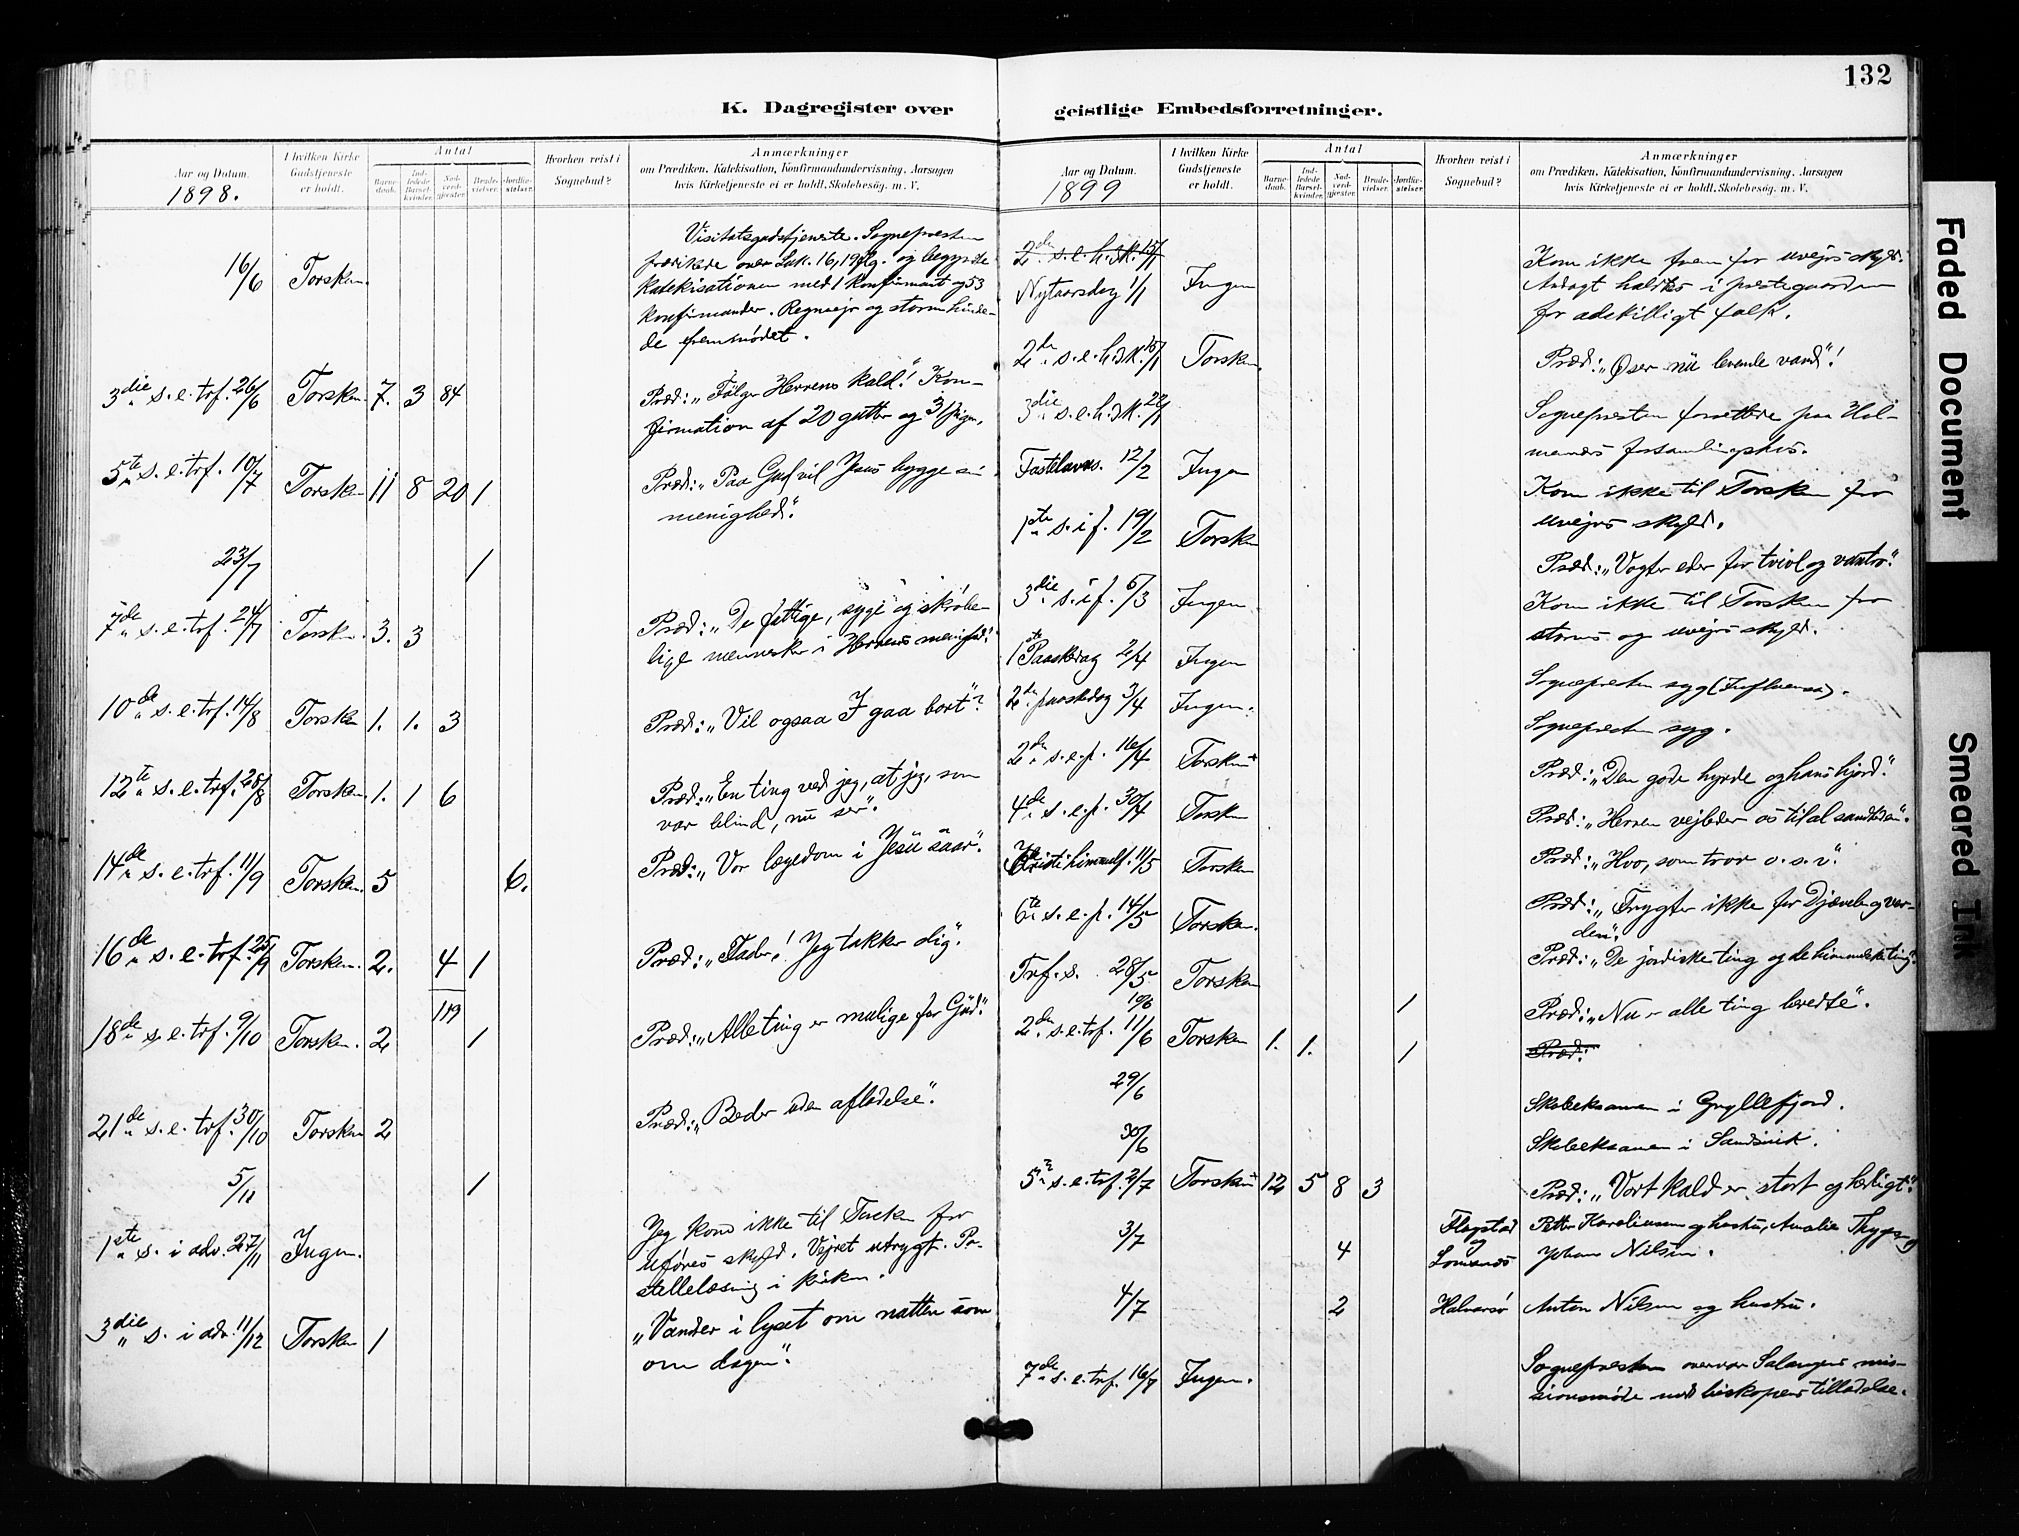 132
K. Dagregister over
geistlige Embedsforretninger.
Aar og Datum.
1898.
I hvilken Kirke
Gudstjeneste
er holdt.
Antal
Barne-
daab.
Ind-
ledede
Barsel-
kvinder.
Nad-
verd-
gjester.
Brude-
vielser.
Jordfæ-
stelser.
Hvorhen reist i
Sognebud?
Anmærkninger
om Prædiken, Katekisation, Konfirmandundervisning, Aarsagen
hvis Kirketjeneste ei er holdt, Skolebesøg, m. V.
Visitatsgudstjeneste. Sognepresten
prædikede over Luk. 16, 19 flg. og begyndte
katekisationen med 1 konfirmant og 53
konfirmander. Regnvejr og storm hindre-
de fremmødet.
16/6 Torsken.
3die s. e. trf. 26/6 Torsken. 7. 3 84 Præd: „Følger Herrens kald! Kon-
firmation af 20 gutter og 31 piger.
5te s. e. trf. 10/7 Torsken 11 8 20 1 Præd: „Paa Gud vil Jesus bygge sin
menighed“.
23/7 1
7de s. e. trf. 24/7 Torsken. 3. 3 Præd: „De fattige, syge og skrøbe-
lige mennesker i Herrens menighed“.
10de s. e. trf. 14/8 Torsken 1. 1. 3 Præd: „Vil ogsaa I gaa bort“?
12te s. e. trf. 28/8 Torsken. 1. 1 6 Præd: „En ting ved jeg, at jeg, som
var blind, nu ser“.
14de s. e. trf. 11/9 Torsken. 5 6. Præd: „Vor lægedom i Jesu saar“.
16de s. e. trf. 25/9 Torsken. 2. 4 1 Præd: „Fader! Jeg takker dig“.
119
18de s. e. trf. 9/10 Torsken. 2 1 Præd: „Alle ting er mulige for Gud“.
21de s. e. trf. 30/10 Torsken 2 Præd: „Beder uden afladelse“.
5/11 1
1ste s. i adv. 27/11 Ingen. Jeg kom ikke til Torsken for
uføres skyld. Vejret utrygt. Po-
stillelæsning i kirken.
3die s. i adv. 11/12 Torsken 1 „Vandrer i lyset om natten som
om dagen“.
Aar og Datum.
1899
I hvilken Kirke
Gudstjeneste
er holdt.
Antal
Barne-
daab.
Ind-
ledede
Barsel-
kvinder.
Nad-
verd-
gjester.
Brude-
vielser.
Jordfæ-
stelser.
Hvorhen reist i
Sognebud?
Anmærkninger
om Prædiken, Katekisation, Konfirmandundervisning, Aarsagen
hvis Kirketjeneste ei er holdt, Skolebesøg, m. V.
2den s. e. h. 3 k. 15/1
Nytaarsdag 1/1 Ingen Kom ikke frem for uvejrs skyld.
Andagt holdtes i prestegaarden
for adskilligt folk.
2den s. e. h. 3 k. 15/1 Torsken. Præd: „Øser nu levende vand“!
3die s. e. h. 3 k. 22/1 Sognepresten forrettede paa Hol-
menes forsamlingshus.
Fastelavns. 12/2 Ingen Kom ikke til Torsken for
uvejrs skyld.
1ste s. i f. 19/2 Torsken Præd: „Vogter eder for tvivl og vantro“.
3die s. i f. 5/3 Ingen. Kom ikke til Torsken for
storms og uvejrs skyld.
1ste Paaskedag 2/4 Ingen Sognepresten syg (Influensa).
2den paaskedag 3/4 Ingen. Sognepresten syg.
2den s. e. p. 16/4 Torsken Præd: „Den gode hyrde og hans hjord“.
4de s. e. p. 30/4 Torsken Præd: „Herren vejleder os til al sandheden“.
Kristi himmelf. 11/5 Torsken Præd: „Hvo, som tror o. s. v.“
6te s. e. p. 14/5 Torsken. Præd: „Frygter ikke for Djævelen og ver-
den“.
Trf. s. 28/5 Torsken Præd: „De jordiske ting og de himmelske ting“.
10/6 1
2den s. e. trf. 11/6 Torsken 1. 1. 1 Præd: „Nu er alle ting beredte“.
Præd:
29/6 Skoleeksamen i Gryllefjord.
30/6 Skoleeksamen i Sandsvik.
5te s. e. trf. 2/7 Torsken 12 5 8 3 Præd: „Vort kald er stort og herligt“.
3/7 4 Flagstad
og
Petter Karoliussen og hustru, Amalie Thygesen og
Johan Nilsen.
4/7 2 Halvarsø Anton Nilsen og hustru.
7de s. e. trf. 16/7 Ingen. Sognepresten overvar Salangens mis-
sionsmøde med biskopens tilladelse.
Faded Document
Smeared Ink